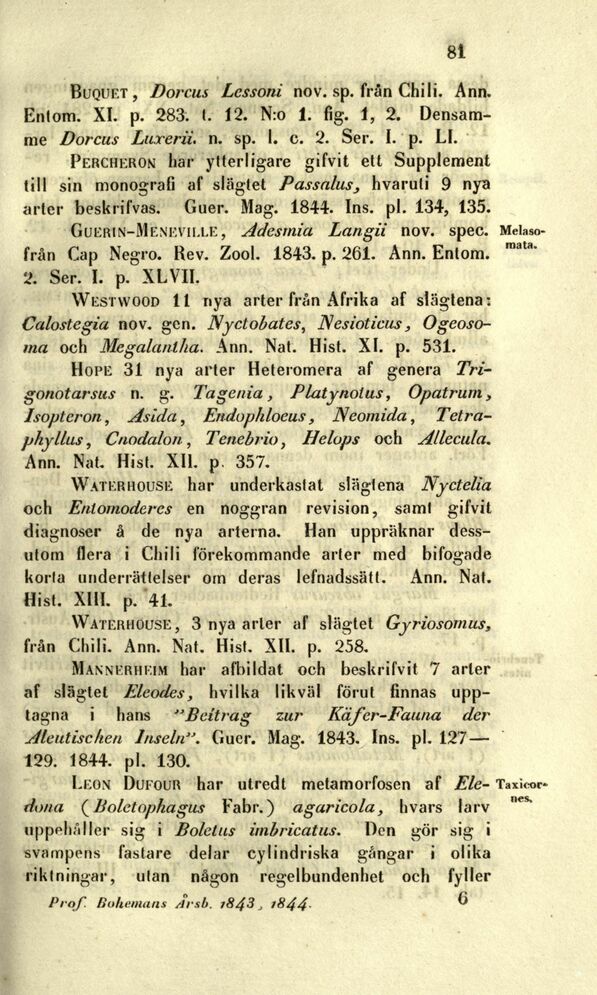 81
BUQUET, Dorcus Lessoni nov. sp. från Chili. Ann.
Entom. XI. p. 283. t. 12. N:o 1. fig. 1, 2. Densam-
me Dorcus Luxerii. n. sp. l. c. 2. Ser. I. p. LI.
PERCHERON har ytterligare gifvit ett Supplement
till sin monografi af slägtet Passalus, hvaruti 9 nya
arter beskrifvas. Guer. Mag. 1844. Ins. pl. 134, 135.
GUERIN-MENEVILLE, Adesmia Langii nov. spec.
Melaso-
mata.
från Cap Negro. Rev. Zool. 1843. p. 261. Ann. Entom.
2. Ser. I. p. XLVII.
WESTWOOD 11 nya arter från Afrika af slägtena:
Calostegia nov. gen. Nyctobates, Nesioticus, Ogeoso-
ma och Megalantha. Ann. Nat. Hist. XI. p. 531.
HOPE 31 nya arter Heteromera af genera Tri-
gonotarsus n. g. Tagenia, Platynotus, Opatrum,
Isopteron, Asida, Endophloeus, Neomida, Tetra-
phyllus, Cnodalon, Tenebrio, Helops och Allecula.
Ann. Nat. Hist. XII. p. 357.
WATERHOUSE har underkastat slägtena Nyctelia
och Entomoderes en noggran revision, samt gifvit
diagnoser å de nya arterna. Han uppräknar dess-
utom flera i Chili förekommande arter med bifogade
korta underrättelser om deras lefnadssätt. Ann. Nat.
Hist. XIII. p. 41.
WATERHOUSE, 3 nya arter af slägtet Gyriosomus,
från Chili. Ann. Nat. Hist. XII. p. 258.
MANNERHEIM har afbildat och beskrifvit 7 arter
af slägtet Eleodes, hvilka likväl förut finnas upp-
tagna i hans "Beitrag zur Käfer-Fauna der
Aleutischen Inseln". Guer. Mag. 1843. Ins. pl. 127—
129. 1844. pl. 130.
LEON DUFOUR har utredt metamorfosen af Ele-
Taxicor-
nes.
dona (Boletophagus Fabr.) agaricola, hvars larv
uppehåller sig i Boletus imbricatus. Den gör sig i
svampens fastare delar cylindriska gångar i olika
riktningar, utan någon regelbundenhet och fyller
Prof. Bohemans Årsb. 1843, 1844.
6